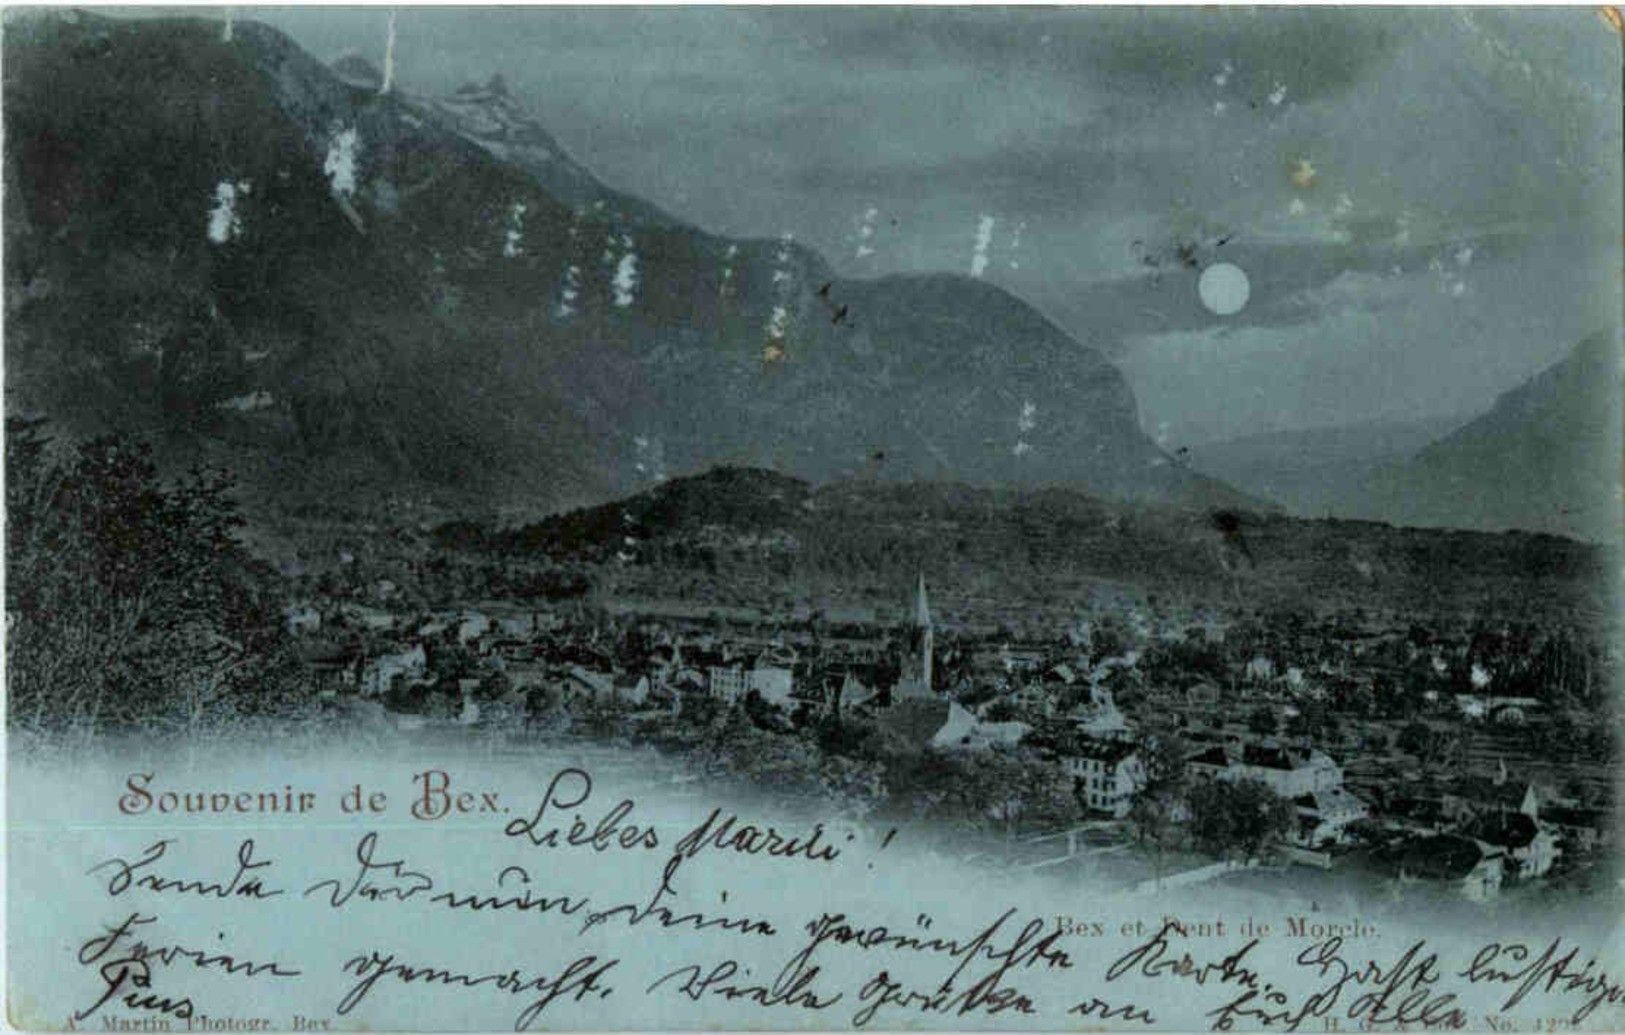 Souvenir de Bex.
Liebes Marili!
Sende Dir nun deine gewünschte Karte. Hast lustige
Bex et Dent de Morcle.
Ferien gemacht. Viele Grüße an Euch Alle
Pius
A. Martin Photogr. Bex.
No.